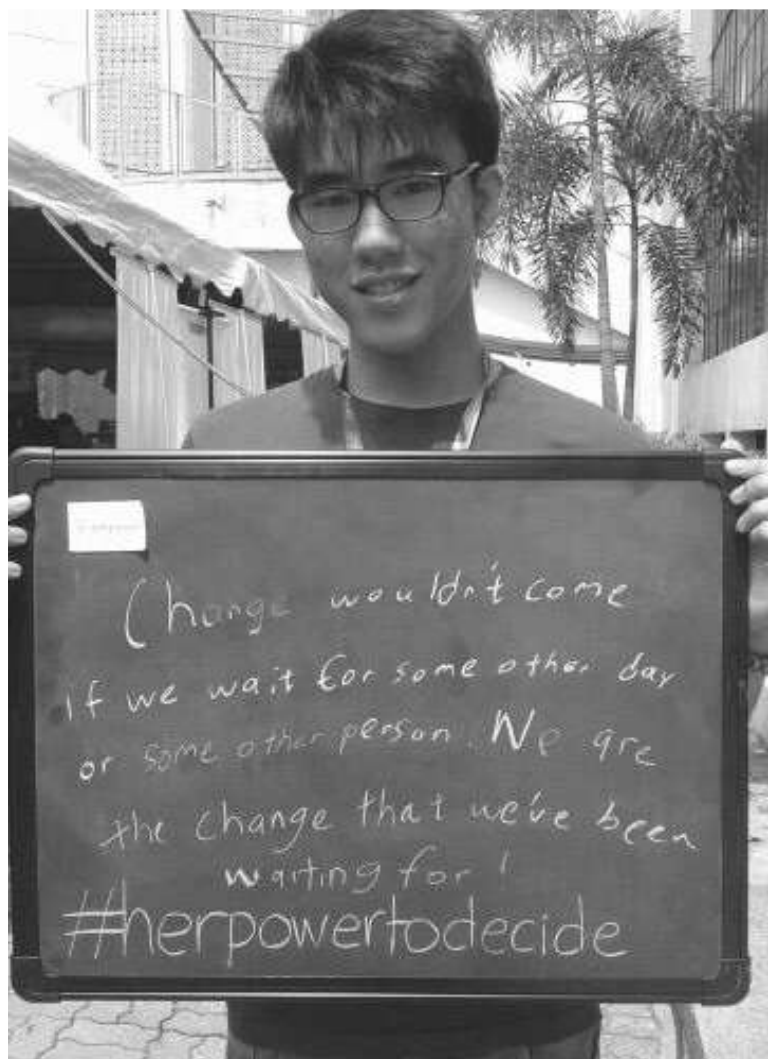 Change wouldn't come
if we wait for some other day
or some other person. We are
the change that we've been
waiting for!
#herpowertodecide